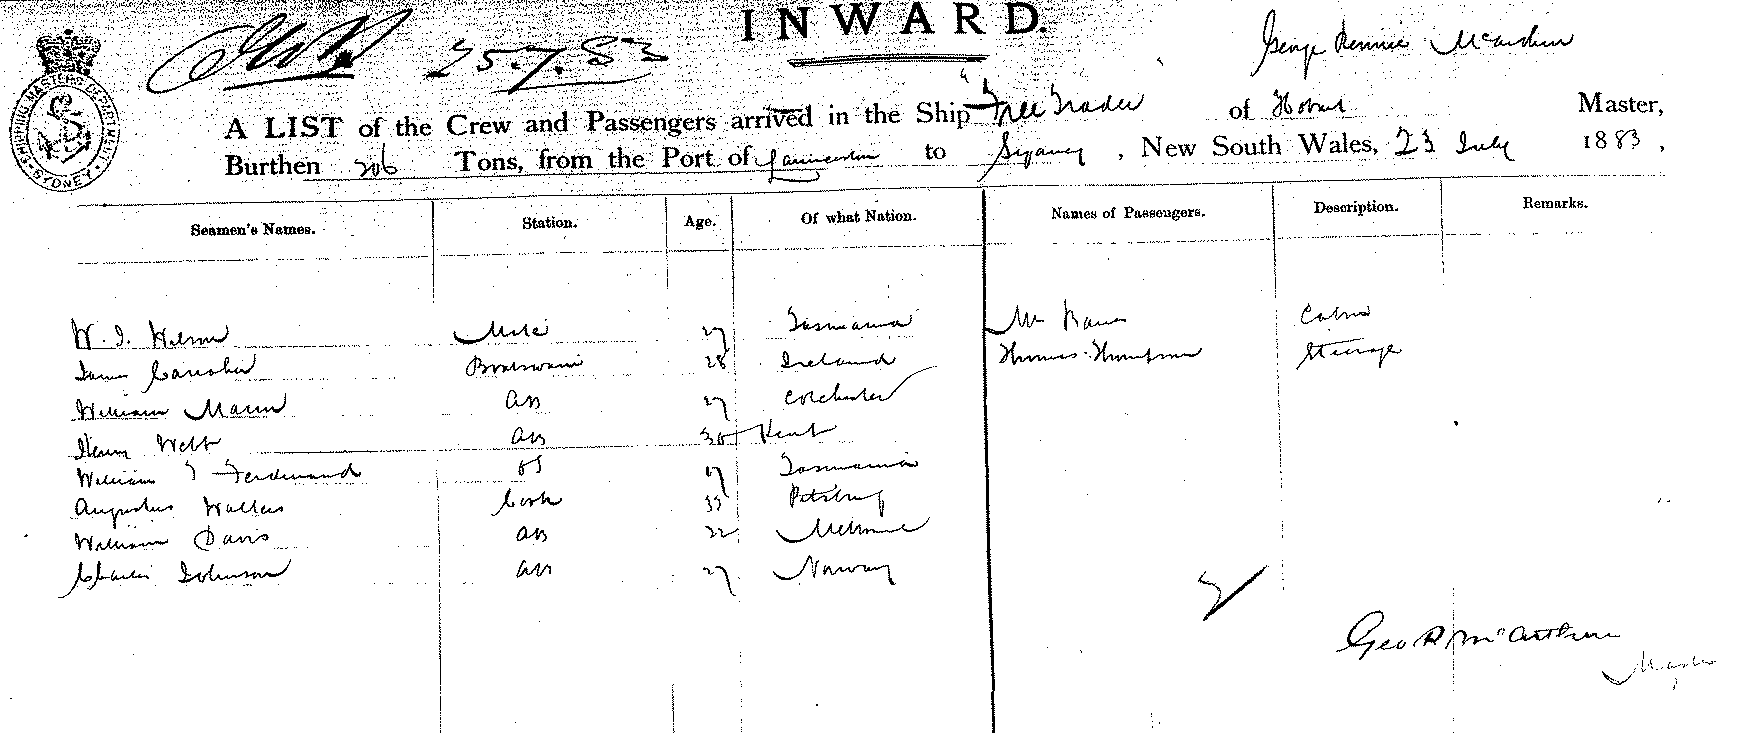 INWARD.
25.7.83
George Rennie McArthur
SHIPPING MASTER'S DEPARTMENT
SYDNEY
A LIST of the Crew and Passengers arrived in the Ship "Free Trader of Hobart Master,
Burthen 206 Tons, from the Port of Launceston to Sydney, New South Wales, 23 July 1883,
Seamen's Names. Station. Age. Of what Nation. Names of Passengers. Description. Remarks.
W. J. Wilson Mate 27 Tasmania Mr Cabin
James Boatswain 28 Ireland Thomas Thompson Steerage
William Mann AB 27 Colchester
Henry Webb AB 30 Kent
William T Ferdinand OS 17 Tasmania
Augustus Walters Cook 33 Pittsburg
William Davis AB 22 Melbourne
Charles Johnson AB 27 Norway
Geo R McArthur
Master